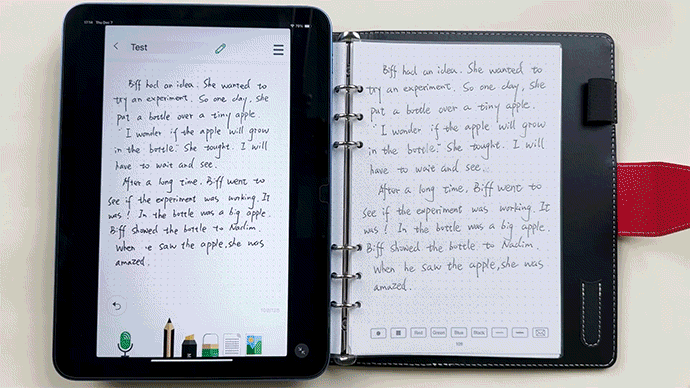 17:16 Thu Dec 7
76%
Test
Biff had an idea. She wanted to
try an experiment. So one day, she
put a bottle over a tiny apple.
"I wonder if the apple will grow
in the bottle." She tought. I will
have to wait and see.
After a long time, Biff went to
see if the experiment was working. It
was! In the bottle was a big apple.
Biff showed the bottle to Nadim.
When e saw the apple, she was
amazed.
Biff had an idea. She wanted to
try an experiment. So one day, she
put a bottle over a tiny apple.
"I wonder if the apple will grow
in the bottle." She tought. I will
have to wait and see.
After a long time, Biff went to
see if the experiment was working. It
was! In the bottle was a big apple.
Biff showed the bottle to Nadim.
When he saw the apple, she was
amazed.
Red Green Blue Black